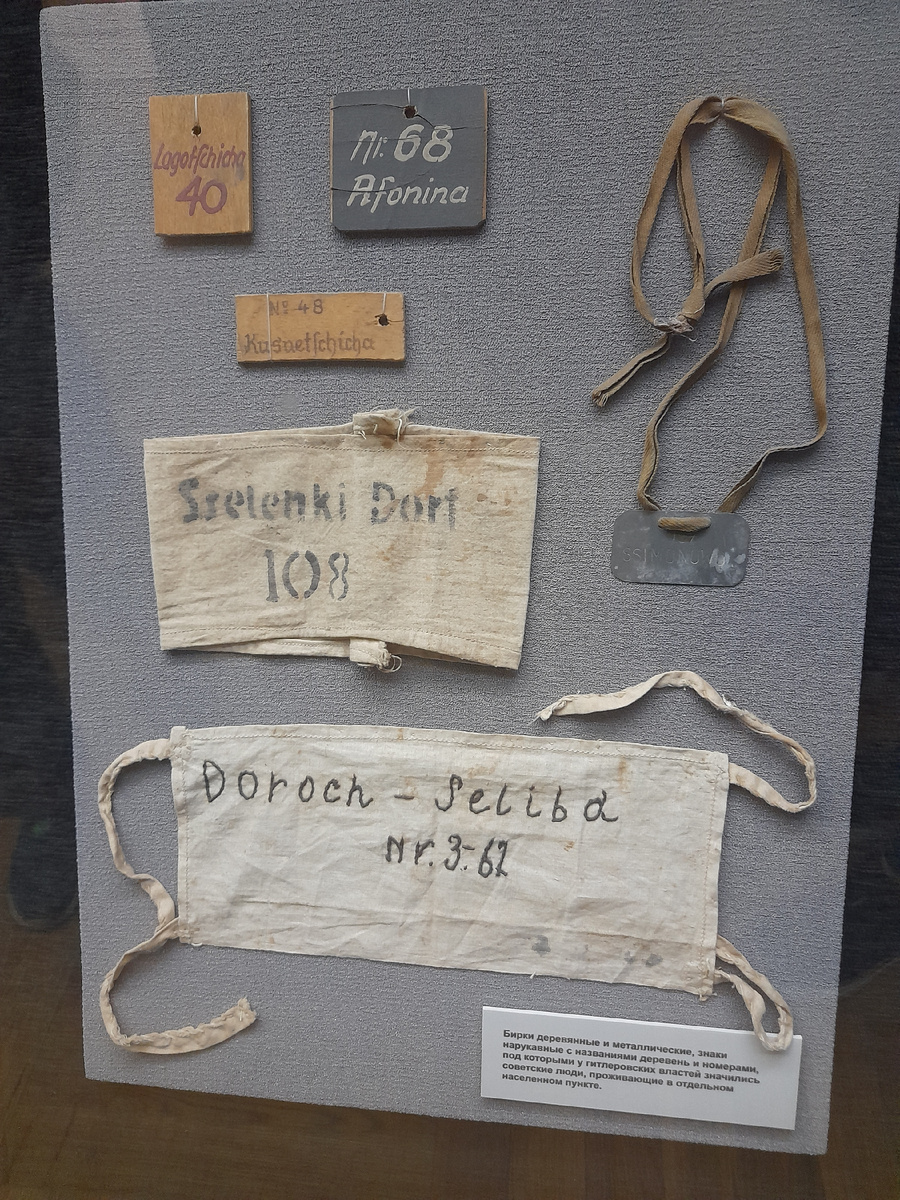 Lagotſchicha
40
Nr. 68
Afonina
№ 48
Kusnetſchicha
Sselenki Dorf
108
SSIMONOWA
Doroch - Seliba
Nr. 3-62
Бирки деревянные и металлические, знаки
нарукавные с названиями деревень и номерами,
под которыми у гитлеровских властей значились
советские люди, проживающие в отдельном
населенном пункте.